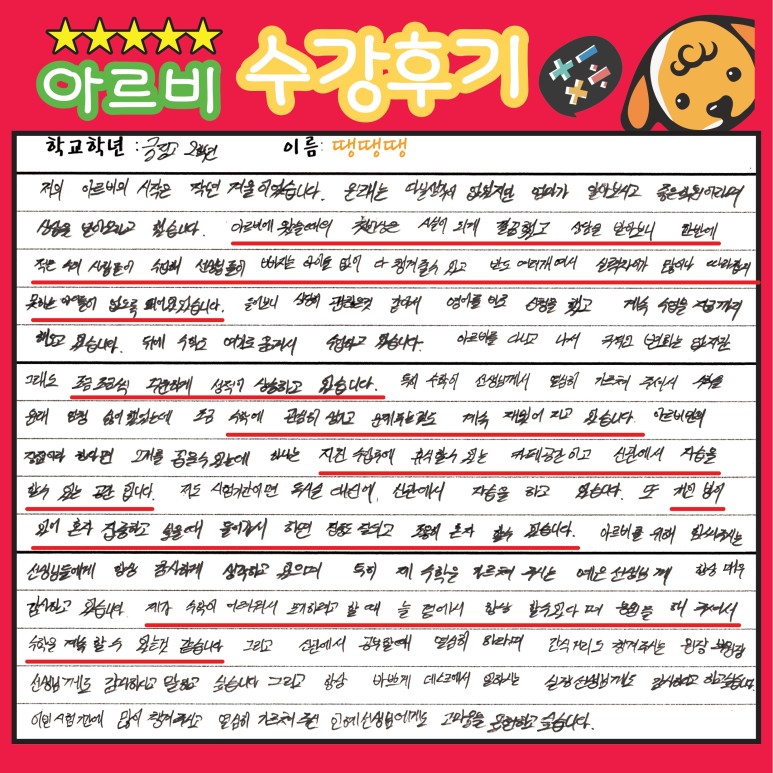 아르비 수강후기
학교학년 : 금정고 2학년 이름: 땡땡땡
저의 아르비의 시작은 작년 겨울이었습니다. 원래는 다닐생각이 없었지만 엄마가 알아보시고 좋은학원이라며
상담을 받아보라고 했습니다. 아르비에 왔을때의 첫인상은 시설이 되게 깔끔했고 상담을 받아보니 한반에
적은 수의 사람들이 수업해 선생님들이 빠지는 아이들 없이 다 챙겨줄수 있고 반도 여러개여서 실력차이가 많이나 따라잡지
못하는 아이들이 없도록 되어있었습니다. 들어보니 상당히 괜찮은것 같아서 영어를 먼저 신청을 했고 계속 수업을 지금까지
해오고 있습니다. 뒤에 수학도 여기로 옮겨서 수업하고 있습니다. 아르비를 다니고 나서 극적인 변화는 없지만
그래도 조금조금씩 꾸준하게 성적이 상승하고 있습니다. 특히 수학이 선생님께서 열심히 가르쳐 주셔서
원래 많이 했었는데 조금 수학에 관심이 생기고 문제푸는것도 계속 재밌어 지고 있습니다. 아르비만의
장점이라 한다면 2개를 꼽을수 있는데 하나는 지친 수업후에 휴식할수 있는 카페공간이고 신관에서 자습을
할수 있는 공간 입니다. 저도 시험기간이면 독서실 대신에, 신관에서 자습을 하고 있습니다. 또 개인 방이
있어 혼자 집중하고 싶을때 들어가서 하면 집중도 잘되고 조용히 혼자 할수 있습니다. 아르비를 위해 일하시는
선생님들에게 항상 감사하게 생각하고 있으며 특히 제 수학을 가르쳐 주시는 예은선생님께 항상 매우
감사하고 있습니다. 제가 수학이 어려워서 포기하려고 할 때 늘 옆에서 항상 할수있다 며 응원을 해 주셔서
수학을 계속 할 수 있는것 같습니다 그리고 신관에서 공부할때 열심히 하라며 간식거리도 챙겨주시는 원장
선생님께도 감사하다고 말하고 싶습니다 그리고 항상 바쁘게 데스크에서 일하시는 실장선생님께도 감사하다고 하고싶습니다.
이번 시험기간에 많이 챙겨주시고 열심히 가르쳐 주신 선생님에게도 고마움을 표현하고 싶습니다.